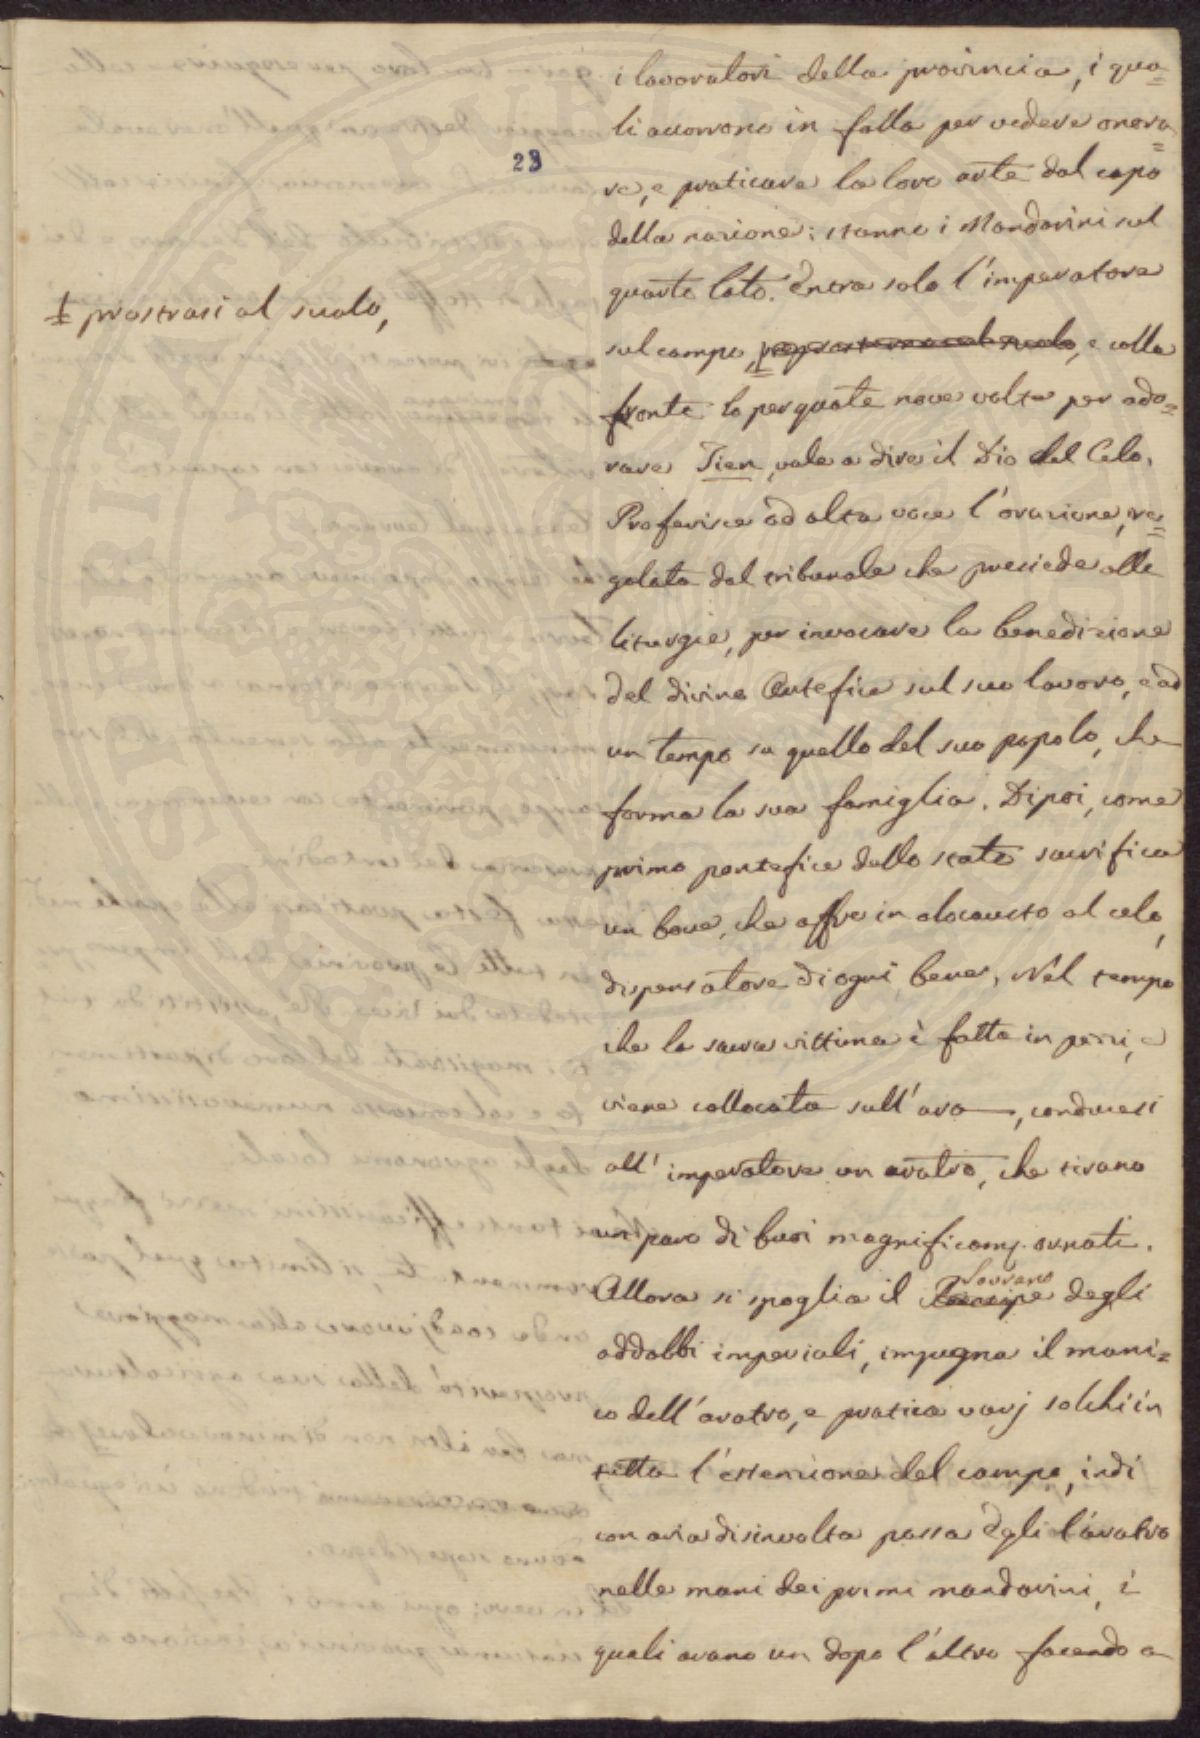 23
i lavoratori della provincia, i qua=
li accorrono in folla per vedere onora=
re, e praticare la loro arte dal capo
della nazione; stanno i Mandarini sul
quarto lato. Entra solo l'imperatore
‡ prostrasi al suolo,
sul campo, e colla
fronte lo perquote nove volte per ado=
rare Tien, vale a dire il Dio del Celo.
Proferisce ad alta voce l'orazione, re=
golata dal tribunale che presiede alle
liturgie, per invocare la benedizione
del divino Artefice sul suo lavoro, e ad
un tempo su quello del suo popolo, che
forma la sua famiglia. Dipoi, come
primo pontefice dello stato sacrifica
un bove, che offre in olocausto al celo,
dispensatore di ogni bene. Nel tempo
che la sacra vittima è fatta in pezzi, e
viene collocata sull'ara, conducesi
all'imperatore un aratro, che tirano
un paro di buoi magnificam. ornati.
Sovrano
Allora si spoglia il Principe degli
addobbi imperiali, impugna il mani=
co dell'aratro, e pratica varj solchi in
tutta l'estenzione del campo, indi
con aria disinvolta passa Egli l'aratro
nelle mani dei primi mandarini, i
quali arano un dopo l'altro facendo a